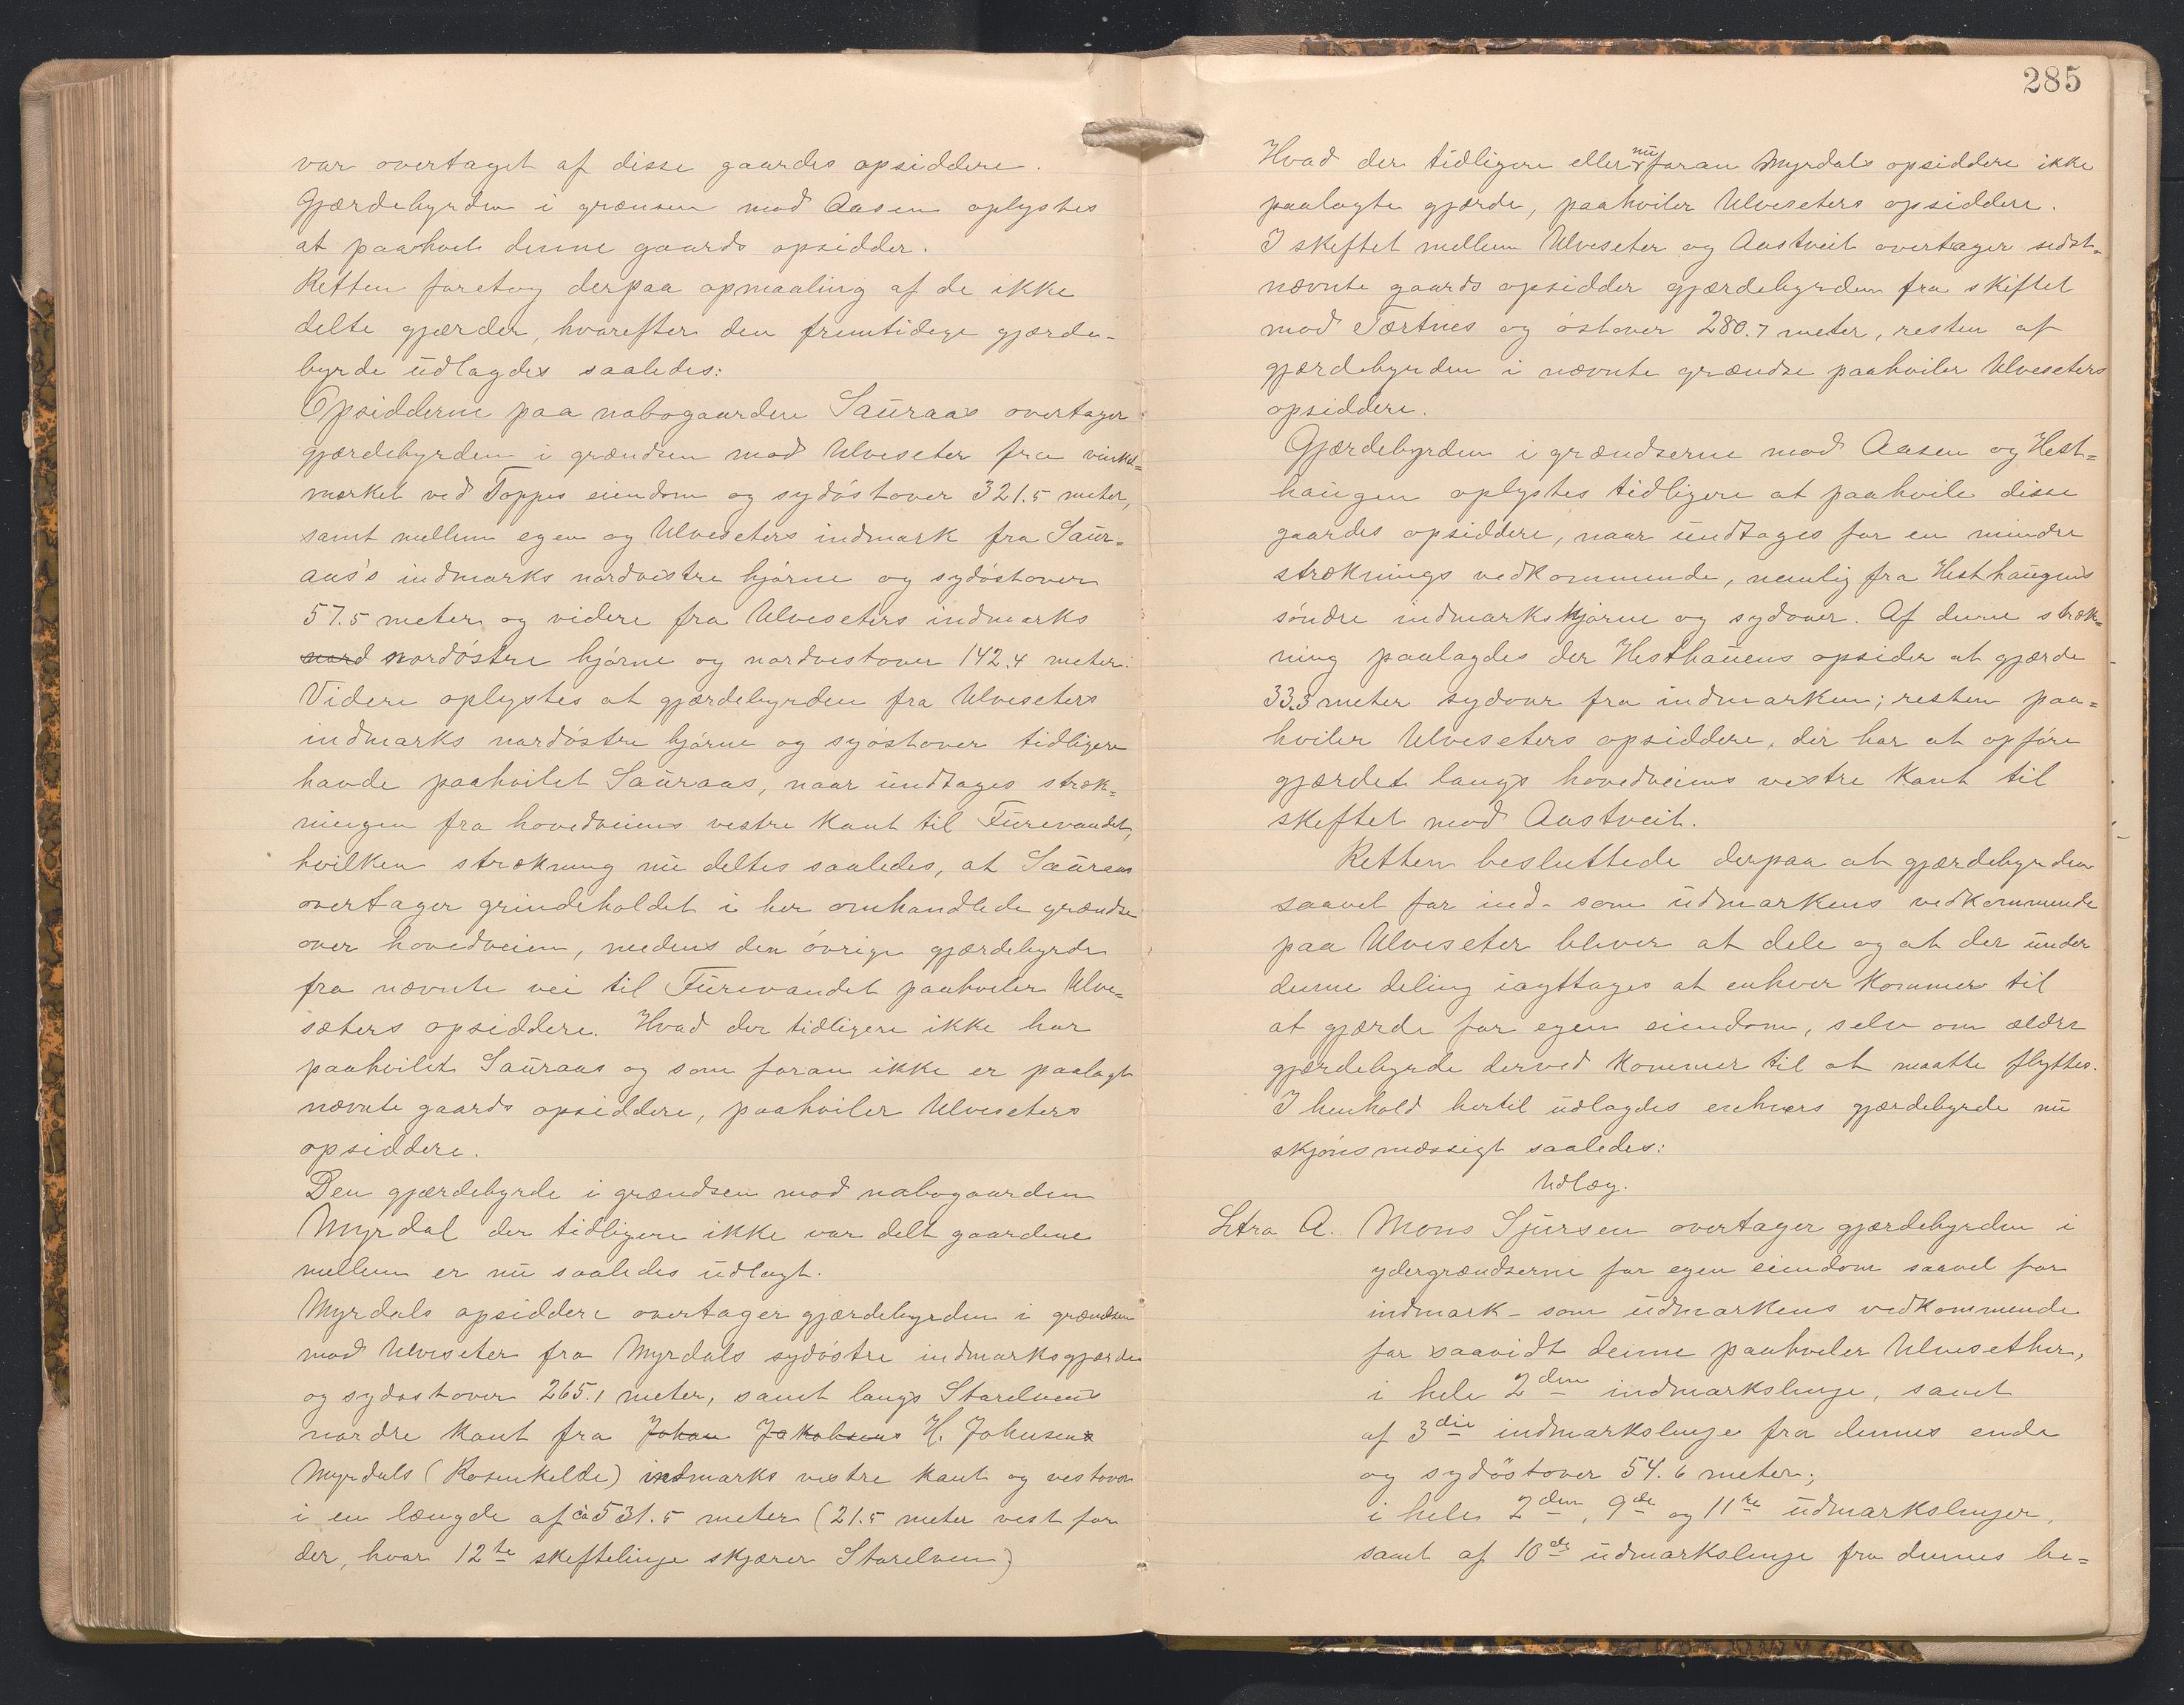 var overtaget af disse gaardes opsiddere.
Gjærdebyrden i grænsen mod Aasen oplystes
at paahvile denne gaards opsidder.
Retten foretog derpaa opmaaling af de ikke
delte gjærder, hvorefter den fremtidige gjærde-
byrde udlagdes saaledes:
Opsidderne paa nabogaarden Sauraas overtager
gjærdebyrden i grændsen mod Ulveseter fra vinkel=
merket ved Toppes eiendom og sydøstover 321.5 meter,
samt mellem egen og Ulveseters indmark fra Saur=
aas's indmarks nordvestre hjørne og sydøstover
57.5 meter og videre fra Ulveseters indmarks
nord nordøstre hjørne og nordvestover 142.4 meter.
Videre oplystes at gjærdebyrden fra Ulveseters
indmarks nordøstre hjørne og syøstover tidligere
havde paahvilet Sauraas, naar undtages stræk=
ningen fra hovedveiens vestre kant til Furevandet,
hvilken strækning nu deltes saaledes, at Sauraas
overtager grindeholdet i her omhandlede grændse
over hovedveien, medens den øvrige gjærdebyrde
fra nævnte vei til Furevandet paahviler Ulve=
sæters opsiddere. Hvad der tidligere ikke har
paahvilet Sauraas og som foran ikke er paalagt
nævnte gaards opsiddere, paahviler Ulveseters
opsiddere.
Den gjærdebyrde i grændsen mod nabogaarden
Myrdal der tidligere ikke var delt gaardene
mellem er nu saaledes udlagt.
Myrdals opsiddere overtager gjærdebyrden i grændsen
mod Ulveseter fra Myrdals sydøstre indmarksgjærde
og sydostover 265.1 meter, samt langs Storelvens
nordre kant fra Johan Jakobsens H. Johnsens
Myrdals (Rosenkelde) indmarks vestre kant og vestover
i en længde af ca 531.5 meter (21.5 meter vest for
der, hvor 12te skeftelinje skjærer Storelven)
285
Hvad der tidligere eller nu foran Myrdals opsiddere ikke
paalagte gjærde, paahviler Ulveseters opsiddere.
I skeftet mellem Ulveseter og Aastveit overtager sidst=
nævnte gaards opsidder gjærdebyrden fra skiftet
mod Tertnes og østover 280.7 meter, resten af
gjærdebyrden i nævnte grændse paahviler Ulveseters
opsiddere.
Gjærdebyrden i grændserne mod Aasen og Hest=
haugen oplystes tidligere at paahvile disse
gaardes opsiddere, naar undtages for en mindre
stræknings vedkommende, nemlig fra Hesthaugens
søndre indmarkshjørne og sydover. Af denne stræk=
ning paalagdes der Hesthauens opsider at gjærde
33.3 meter sydover fra indmarken; resten paa=
hviler Ulveseters opsiddere, der har at opføre
gjærdet langs hovedveiens vestre kant til
skeftet mod Aastveit.
Retten besluttede derpaa at gjærdebyrden
saavel for ind- som udmarkens vedkommende
paa Ulveseter bliver at dele og at der under
denne deling iagttages at enhver kommer til
at gjærde for egen eiendom, selv om ældre
gjærdebyrde derved kommer til at maatte flyttes.
I henhold hertil udlagdes enhvers gjærdebyrde nu
skjønsmæssigt saaledes:
Udlæg.
Litra A. Mons Sjursen overtager gjærdebyrden i
ydergrændserne for egen eiendom saavel for
indmark- som udmarkens vedkommende
for saavidt denne paahviler Ulvesether,
i hele 2den indmarkslinje, samt
af 3die indmarkslinje fra dennes ende
og sydøstover 54.6 meter;
i hele 2den, 9de og 11te udmarkslinjer,
samt af 10de udmarkslinje fra dennes be=